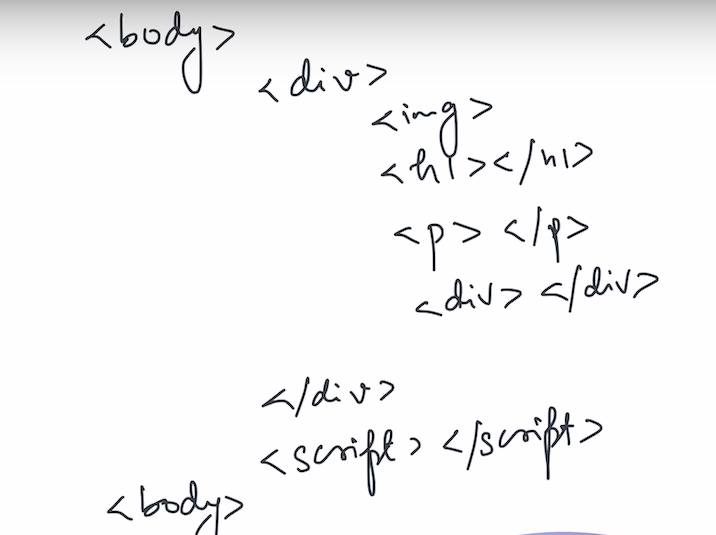 <body>
<div>
<img>
<h1></h1>
<p> </p>
<div> </div>
</div>
<script> </script>
<body>